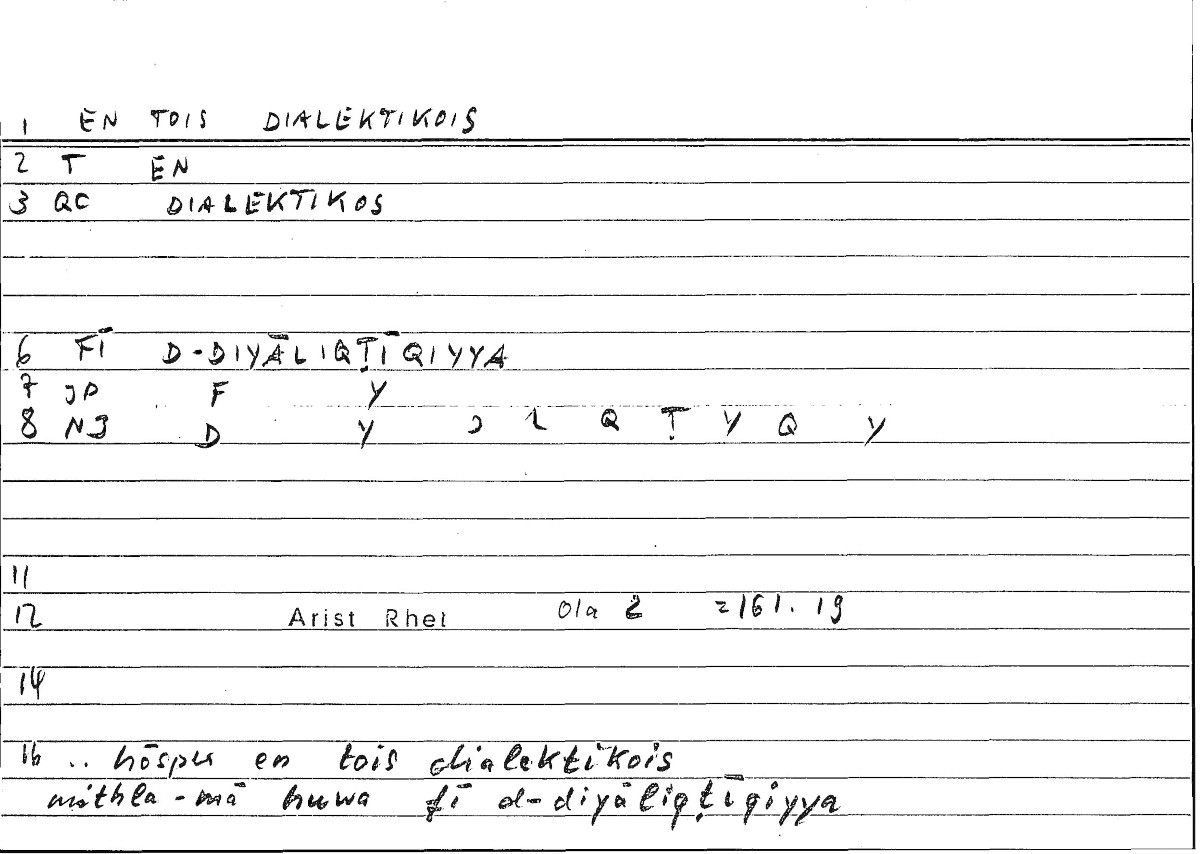 1 EN TOIS DIALEKTIKOIS
2 T EN
3 QC DIALEKTIKOS
6 FĪ D-DIYĀLIQṬĪQIYYA
7 JP F Y
8 N3 D Y ɔ L Q Ṭ Y Q Y
11
12 Arist Rhet 01a 2 =161.19
14
16 .. hōsper en tois dialektikois
mithla-mā huwa fī d-diyāliqṭīqiyya